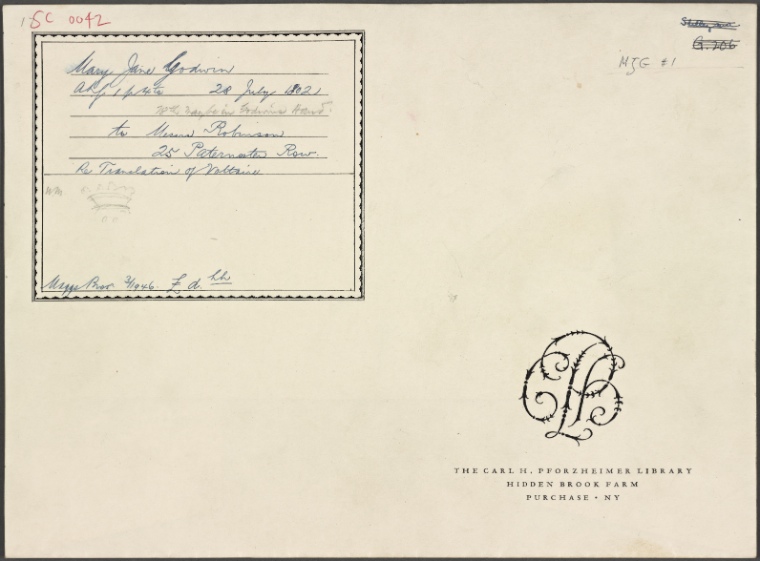 ISC 0042
G. 206
MJG #1
Mary Jane Godwin
ALS 1 p 4to 28 July 1802
in Godwin's Hand
to Messrs Robinson
25 Paternoster Row.
Re Translation of Voltaire
WM
Maggs Bros. 3/1946. £ d.
THE CARL H. PFORZHEIMER LIBRARY
HIDDEN BROOK FARM
PURCHASE • NY